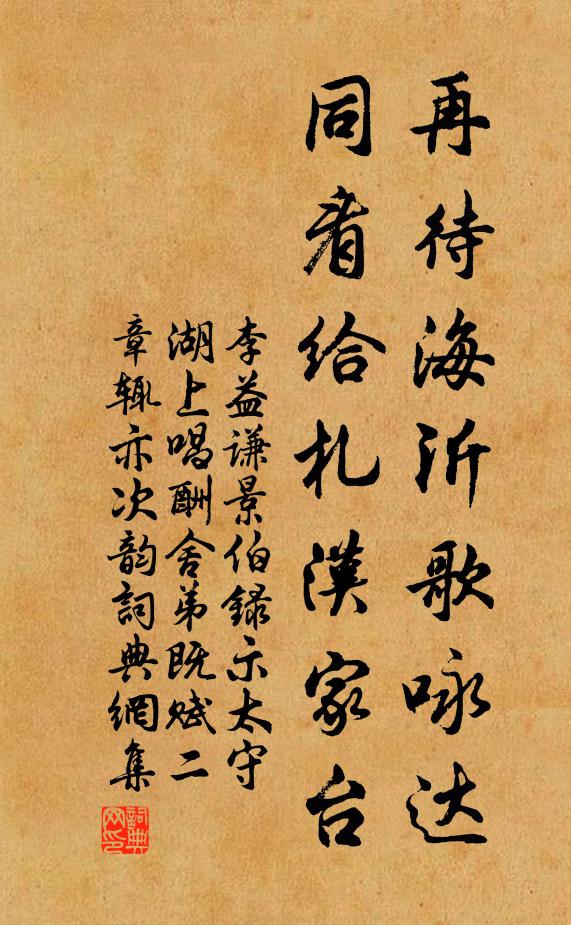 再待海沂歌咏达
同看给札汉家台
李益谦景伯録示太守
湖上唱酬舍弟既赋二
章辄亦次韵词典網集
詞典
网印